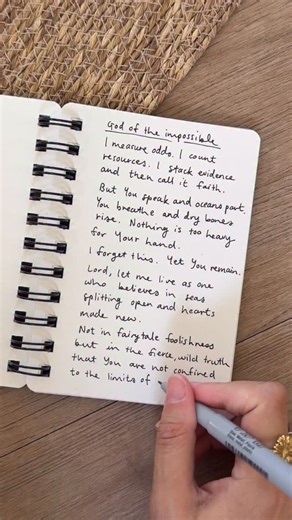 God of the impossible
I measure odds. I count
resources. I stack evidence
and then call it faith.
But you speak and oceans part.
You breathe and dry bones
rise. Nothing is too heavy
for Your hand.
I forget this. Yet You remain.
Lord, let me live as one
who believes in seas
splitting open and hearts
made new.
Not in fairytale foolishness
but in the fierce, wild truth
that You are not confined
to the limits of